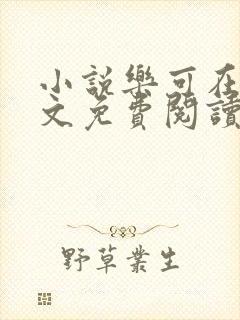 小說樂可在
文免費閱讀
野草叢生